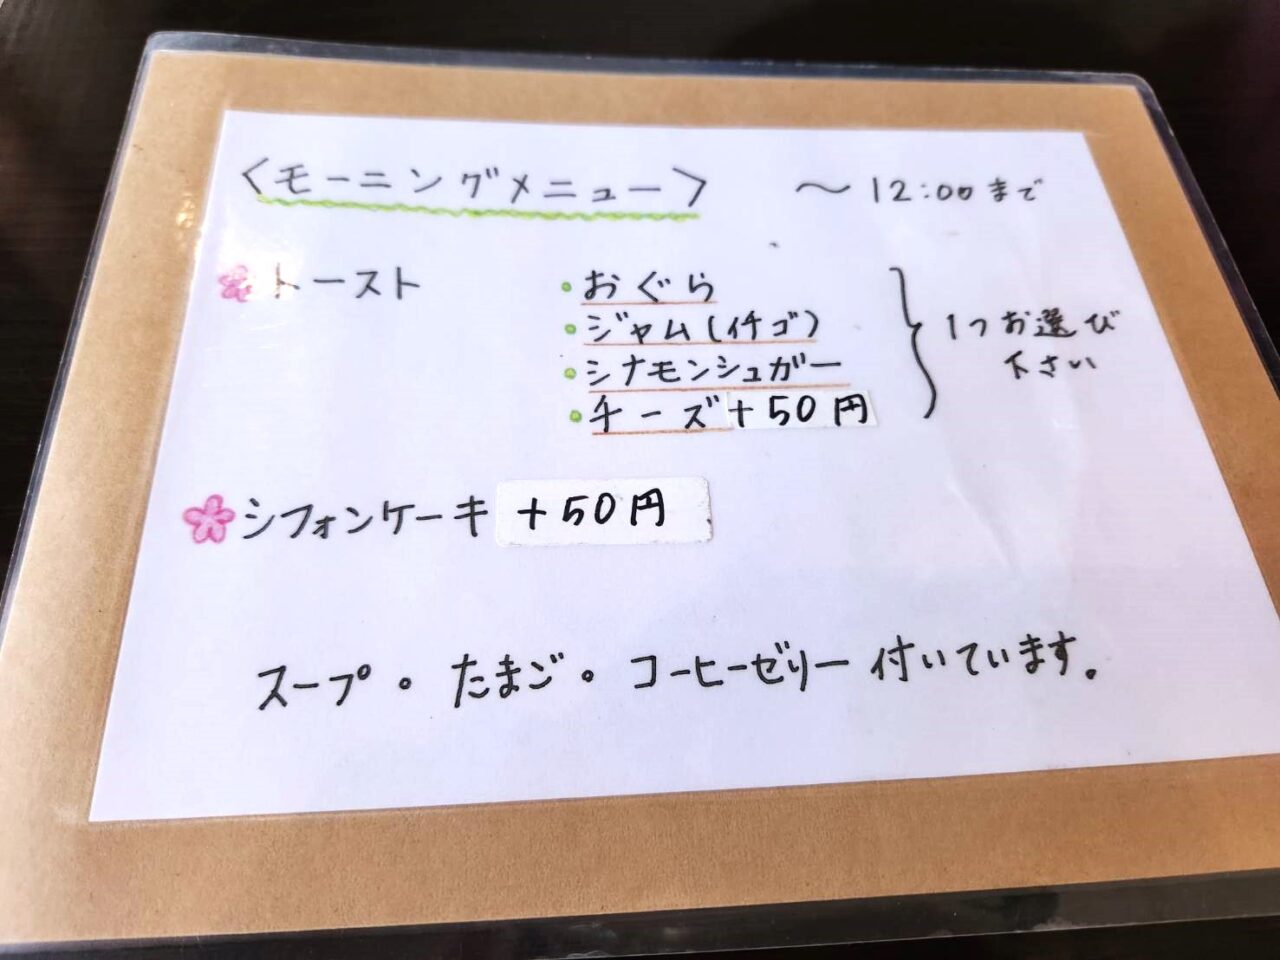 〈モーニングメニュー〉 〜12:00まで
トースト
・おぐら
・ジャム(イチゴ)
・シナモンシュガー
・チーズ+50円
1つお選び
下さい
シフォンケーキ +50円
スープ。たまご。コーヒーゼリー付いています。